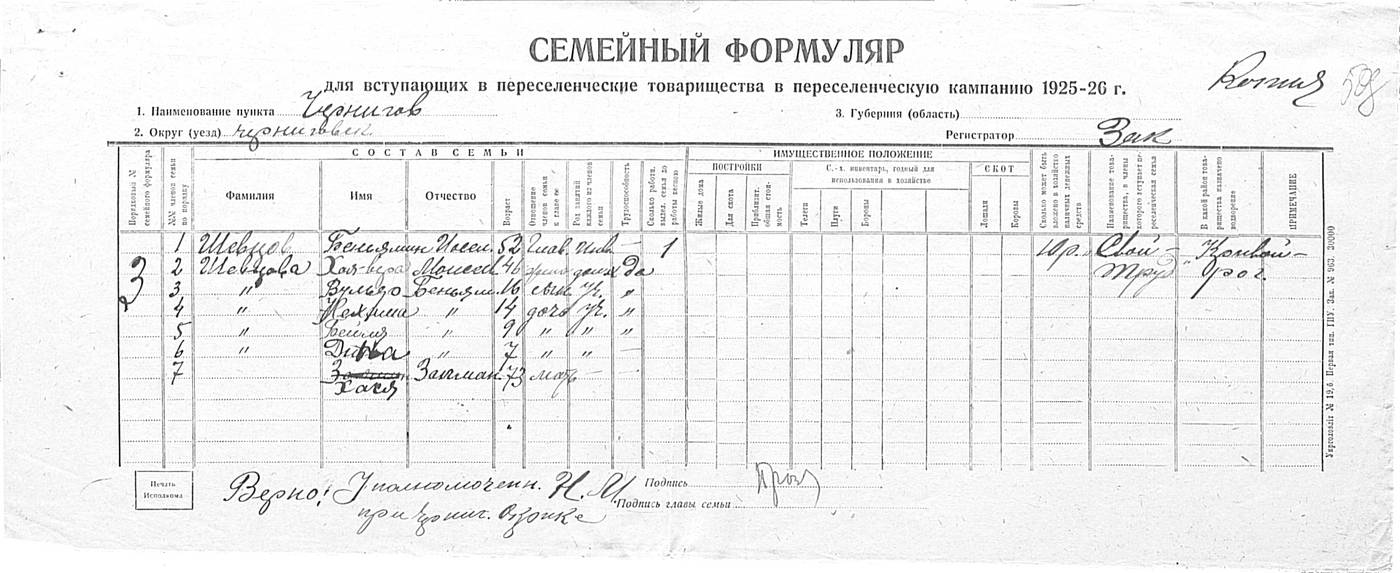 СЕМЕЙНЫЙ ФОРМУЛЯР
для вступающих в переселенческие товарищества в переселенческую кампанию 1925-26 г.
Копия
1. Наименование пункта Чернигов
3. Губерния (область)
2. Округ (уезд) Черниговск.
Регистратор Зак
Порядковый № семейного формуляра
№№ членов семьи по порядку
СОСТАВ СЕМЬИ
Фамилия
Имя
Отчество
Возраст
Отношение членов семьи к главе ее
Род занятий каждого из членов семьи
Трудоспособность
Сколько работн. выдел. семья до работы весною
ИМУЩЕСТВЕННОЕ ПОЛОЖЕНИЕ
ПОСТРОЙКИ
Жилые дома
Для скота
Приблизит. общая стоимость
С.-х. инвентарь, годный для использования в хозяйстве
Телеги
Плуги
Бороны
СКОТ
Лошади
Коровы
Сколько может быть вложено в хозяйство наличных денежных средств
Наименование товарищества, в члены которого вступает переселенческая семья
В какой район товарищества назначено водворение
ПРИМЕЧАНИЕ
3
1 Шевцов Беньямин Иосел. 52 Глав. – 1 Свой –
2 Шевцова Хая-Вера Моисеев 46 домх Да Труд
3 " Вульф Беньям. 16 сын Уч. "
4 " Нехама " 14 дочь Уч. "
5 " Бейля " 9 " " "
6 " Дина " 7 " " –
7 Хася Залман. 73 мать –
Укрголовліт № 19,6 Первая тип. ГПУ. Зак. № 963. 30000
Печать Исполкома
Верно: Уполномоченн. Н. М.
при Черниг. Озрике
Подпись
Подпись главы семьи